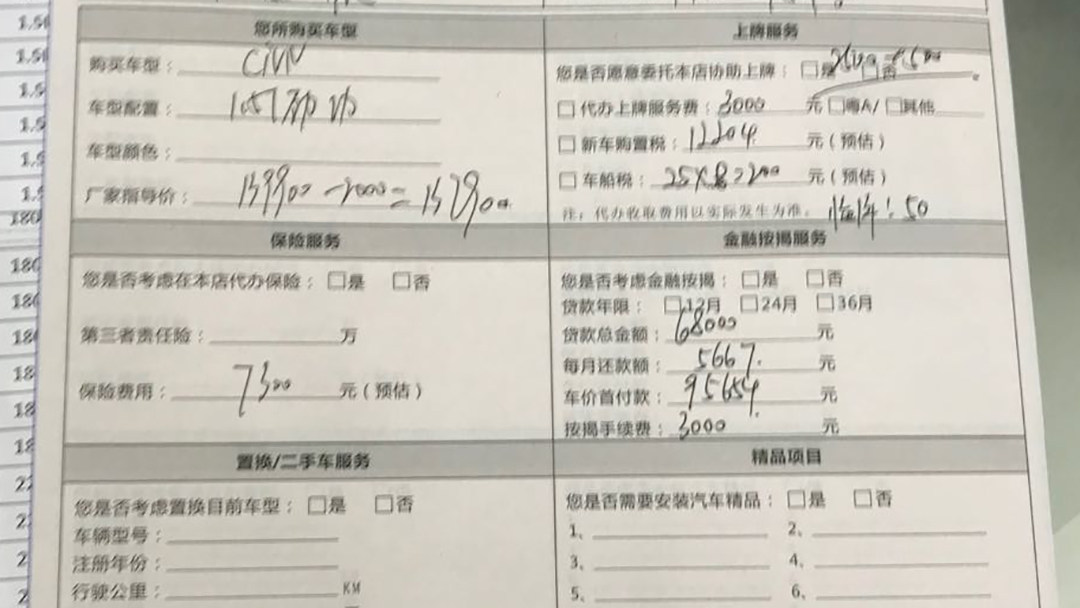 您所购买车型
购买车型：CiViC
车型配置：
车型颜色：
厂家指导价：
上牌服务
您是否愿意委托本店协助上牌：□是 □否
□代办上牌服务费：3000 元 □粤A/ □其他
□新车购置税：12204 元（预估）
□车船税： 元（预估）
注：代办收取费用以实际发生为准。
临牌：50
保险服务
您是否考虑在本店代办保险：□是 □否
第三者责任险： 万
保险费用：7300 元（预估）
金融按揭服务
您是否考虑金融按揭：□是 □否
贷款年限：□12月 □24月 □36月
贷款总金额：68000 元
每月还款额：5667. 元
车价首付款：95654. 元
按揭手续费：3000 元
置换/二手车服务
您是否考虑置换目前车型：□是 □否
车辆型号：
注册年份：
行驶公里： KM
精品项目
您是否需要安装汽车精品：□是 □否
1、 2、
3、 4、
5、 6、